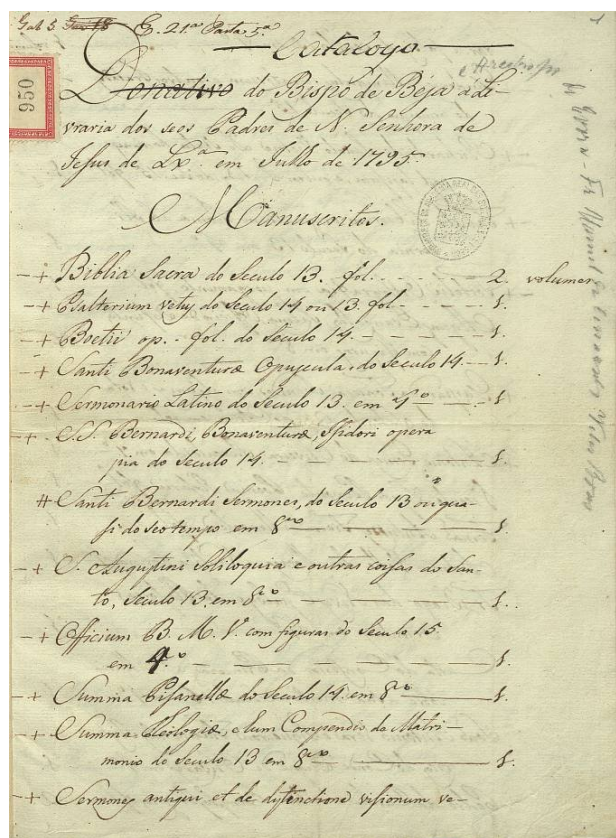 Gab 5 Est 18 E. 21.ª Parta 5.ª
Catalogo
Donativo do Bispo de Beja á Li-
vraria dos seos Padres de N. Senhora de
Jesus de Lx.ª em Julho de 1795.
950
Manuscritos.
- + Biblia Sacra do Seculo 13. fol. - - - - - 2. volumes
- + Psalterium vetus do Seculo 14 ou 13. fol - - - - 1.
- + Boetii op. - fol. do Seculo 14. - - - - - 1.
- + Santi Bonaventuræ Opuscula, do Seculo 14. - - 1.
- + Sermonario Latino do Seculo 13. em 4º - - - 1.
- + S.S. Bernardi, Bonaventuræ, Isidori opera
pia do Seculo 14. - - - - - - 1.
# Santi Bernardi Sermones, do Seculo 13 ou qua-
si do seo tempo em 8.vo - - - - 1.
- + S. Augustini Soliloquia e outras coisas do San-
to, Seculo 13. em 8.º - - - - - 1.
- + Officium B. M. V. com figuras do Seculo 15
em 4.º - - - - - - - 1.
- + Summa Pisanellæ do Seculo 14. em 8.º - - - 1.
- + Summa Theologiæ, e hum Compendio do Matri-
monio do Seculo 13 em 8.vo - - - - 1.
- + Sermones antiqui et de distinctione visionum ve-